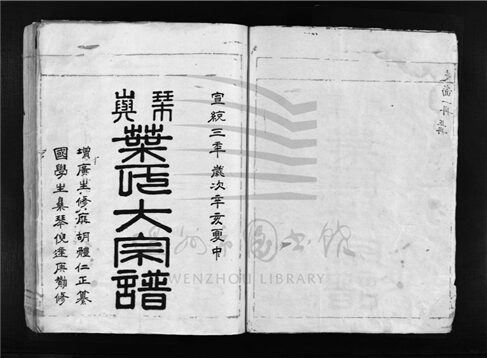 宣統三年歲次辛亥夏中
琴㠘
葉氏大宗譜
增廣生修庭胡體仁正纂
國學生集琴倪逢庚勷修
溫州市圖書館
WENZHOU LIBRARY